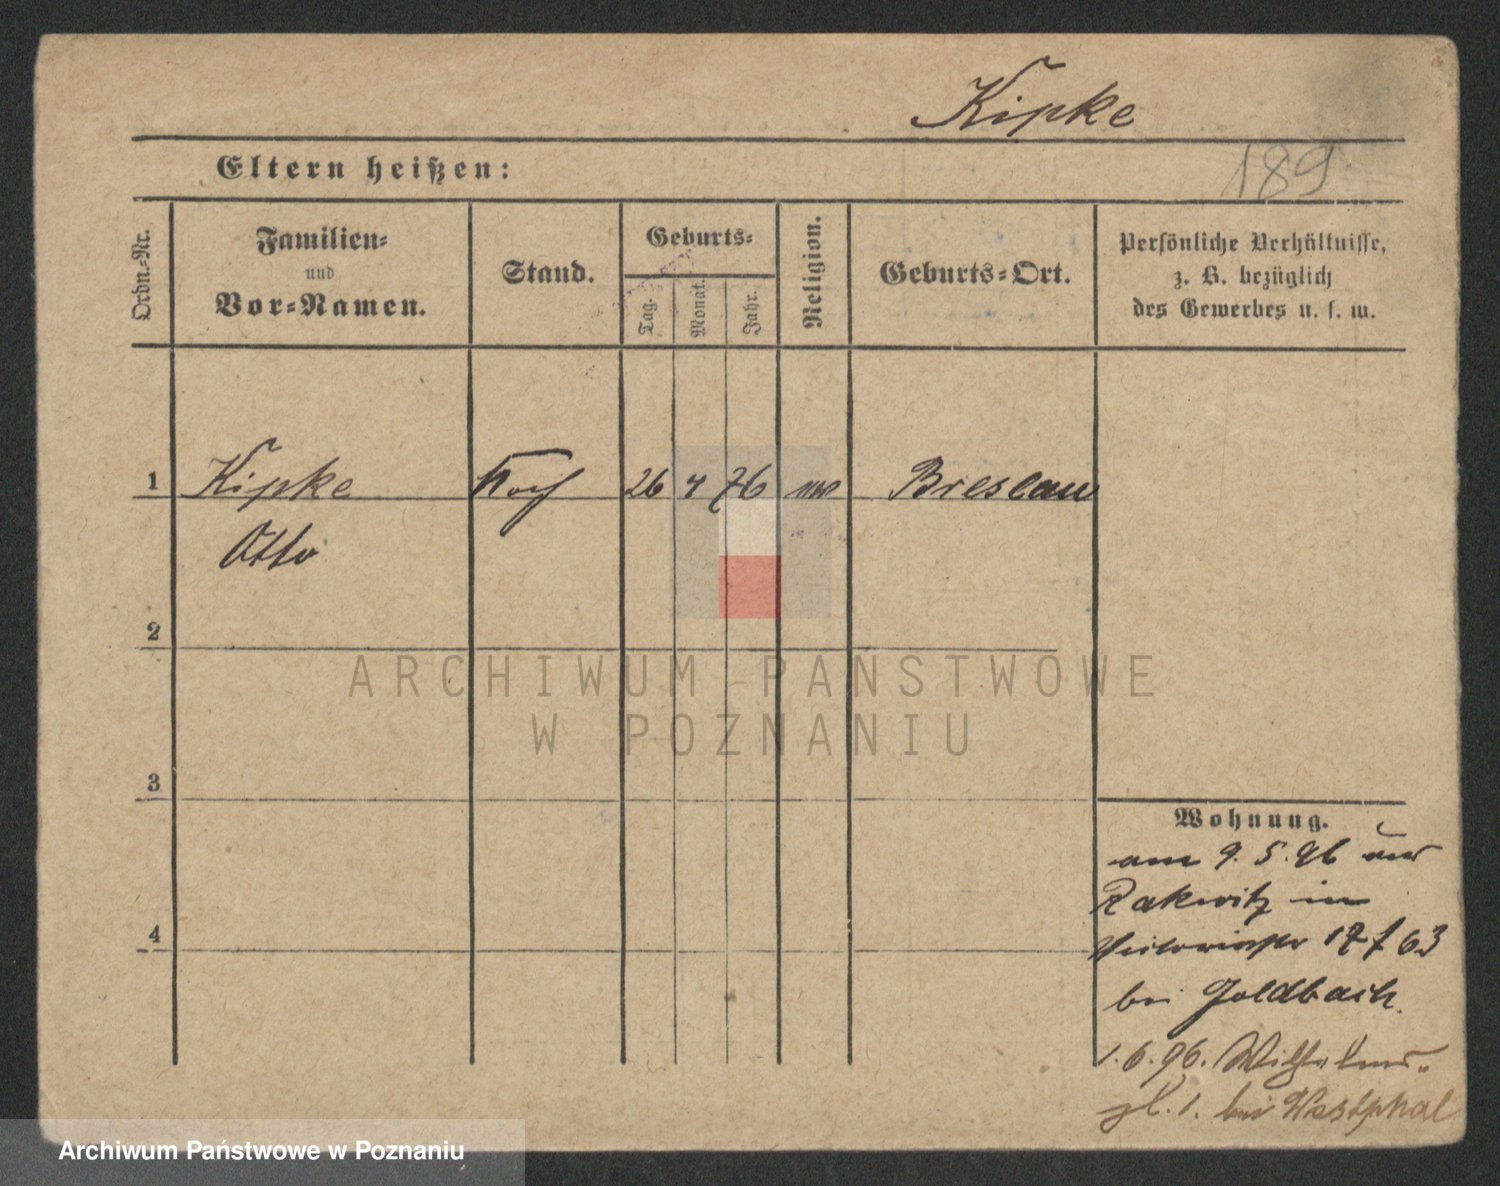 Kipke
189
Eltern heißen:
Ordn.-Nr.
Familien-
und
Vor-Namen.
Stand.
Geburts-
Tag.
Monat.
Jahr.
Religion.
Geburts-Ort.
Persönliche Verhältnisse,
z. B. bezüglich
des Gewerbes u. s. w.
1 Kipke Koch 26 4 76 Breslau
Otto
2
ARCHIWUM PAŃSTWOWE
W POZNANIU
3
Wohnung.
am 9. 5. 96 aus
Rakwitz in
4
63
bei Goldbach.
1. 6. 96. Wilhelms-
pl. 1. bei Westphal
Archiwum Państwowe w Poznaniu